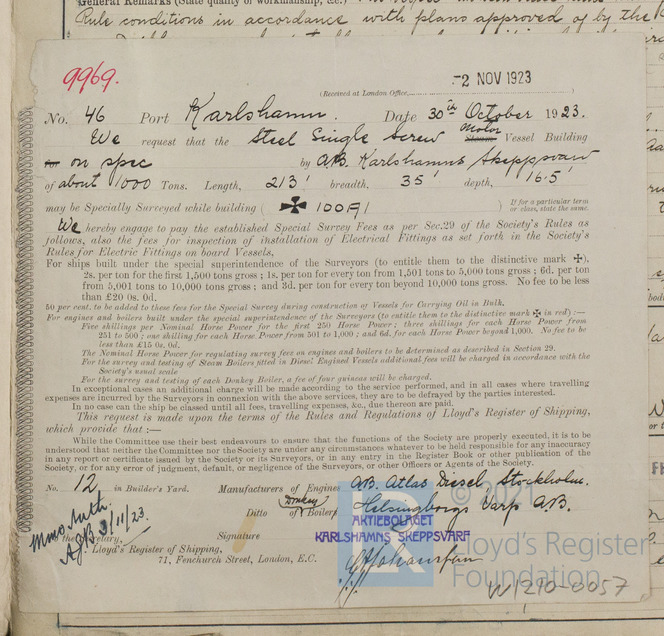 General Remarks (State quality of workmanship, &c.)
Rule conditions in accordance with plans approved of by the
9969.
(Received at London Office, 2 NOV 1923
No. 46 Port Karlshamn. Date 30th October 1923.
We request that the Steel Single Screw Motor Steam Vessel Building
for on spec by A.B. Karlshamns Skeppsvarv
of about 1000 Tons. Length, 213' breadth, 35' depth, 16.5'
may be Specially Surveyed while building ( ✠ 100A1 ) If for a particular term or class, state the same.
We hereby engage to pay the established Special Survey Fees as per Sec.29 of the Society's Rules as
follows, also the fees for inspection of installation of Electrical Fittings as set forth in the Society's
Rules for Electric Fittings on board Vessels,
For ships built under the special superintendence of the Surveyors (to entitle them to the distinctive mark ✠).
2s. per ton for the first 1,500 tons gross ; 1s. per ton for every ton from 1,501 to 5,000 tons gross ; 6d. per ton
from 5,001 to 10,000 tons gross ; and 3d. per ton for every ton beyond 10,000 tons gross. No fee to be less
than £20 0s. 0d.
50 per cent. to be added to these fees for the Special Survey during construction of Vessels for Carrying Oil in Bulk.
For engines and boilers built under the special superintendence of the Surveyors (to entitle them to the distinctive mark ✠ in red) :—
Five shillings per Nominal Horse Power for the first 250 Horse Power ; three shillings for each Horse Power from
251 to 500 ; one shilling for each Horse Power from 501 to 1,000 ; and 6d. for each Horse Power beyond 1,000. No fee to be
less than £15 0s. 0d.
The Nominal Horse Power for regulating survey fees on engines and boilers to be determined as described in Section 29.
For the survey and testing of Steam Boilers fitted in Diesel Engined Vessels additional fees will be charged in accordance with the
Society's usual scale
For the survey and testing of each Donkey Boiler, a fee of four guineas will be charged.
In exceptional cases an additional charge will be made according to the service performed, and in all cases where travelling
expenses are incurred by the Surveyors in connexion with the above services, they are to be defrayed by the parties interested.
In no case can the ship be classed until all fees, travelling expenses, &c., due thereon are paid.
This request is made upon the terms of the Rules and Regulations of Lloyd's Register of Shipping,
which provide that :—
While the Committee use their best endeavours to ensure that the functions of the Society are properly executed, it is to be
understood that neither the Committee nor the Society are under any circumstances whatever to be held responsible for any inaccuracy
in any report or certificate issued by the Society or its Surveyors, or in any entry in the Register Book or other publication of the
Society, or for any error of judgment, default, or negligence of the Surveyors, or other Officers or Agents of the Society.
No. 12 in Builder's Yard. Manufacturers of Engines A.B. Atlas Diesel Stockholm.
Ditto of Donkey Boilers Helsingborgs Varf A.B.
© 2021
AKTIEBOLAGET
KARLSHAMNS SKEPPSVARF
3/11/23.
Secretary, Signature
Lloyd's Register of Shipping,
71, Fenchurch Street, London, E.C.
LR
Lloyd's Register
Foundation
W1210-0057